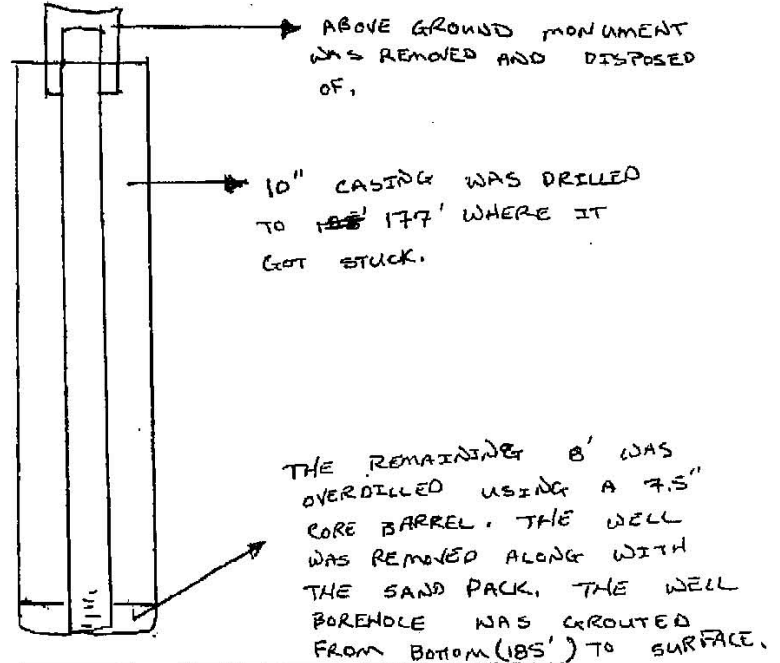 ABOVE GROUND MONUMENT
WAS REMOVED AND DISPOSED
OF.
10" CASING WAS DRILLED
TO 177' WHERE IT
GOT STUCK.
THE REMAINING 8' WAS
OVERDILLED USING A 7.5"
CORE BARREL. THE WELL
WAS REMOVED ALONG WITH
THE SAND PACK. THE WELL
BOREHOLE WAS GROUTED
FROM BOTTOM (185') TO SURFACE.